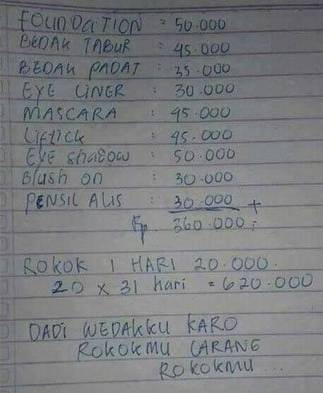 FOUNDATION = 50.000
BEDAK TABUR : 45.000
BEDAK PADAT : 35.000
EYE LINER : 30.000
MASCARA : 45.000
Liftick : 45.000
EYE Shadow : 50.000
Blush on : 30.000
PENSIL ALIS : 30.000 +
Rp. 360.000 ;
ROKOK 1 HARI 20.000.
20 x 31 hari = 620.000
DADI WEDAKKU KARO
ROKOKMU LARANG
ROKOKMU ...